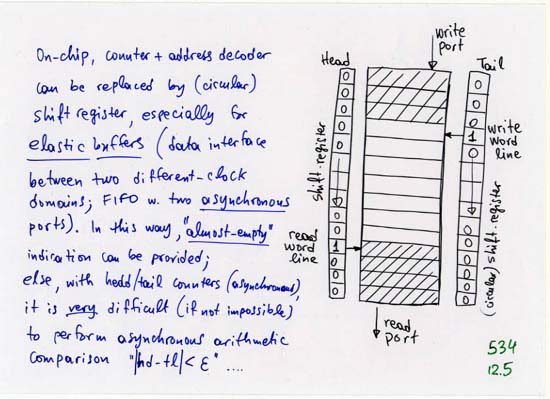 On-chip, counter + address decoder
can be replaced by (circular)
shift register, especially for
elastic buffers (data interface
between two different-clock
domains; FIFO w. two asynchronous
ports). In this way, "almost-empty"
indication can be provided;
else, with head/tail counters (asynchronous),
it is very difficult (if not impossible)
to perform asynchronous arithmetic
comparison "|hd-tl| < ε" ....
write
port
Head
0
0
0
0
0
shift-register
0
0
read
word
line
1
0
0
0
read
port
Tail
0
0
0
write
word
line
1
0
(circular) shift-register
0
0
0
0
0
0
534
12.5